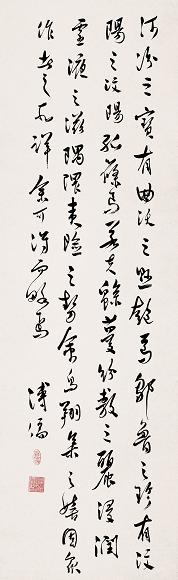 河汾之寶有曲沃之懸匏焉鄒魯之珍有汶
陽之汶陽孤篠焉若夫綿蔓紛敷之麗浸潤
靈液之滋隅隈夷險之勢禽鳥翔集之嬉固眾
作者之所詳余可得而略焉
溥儒